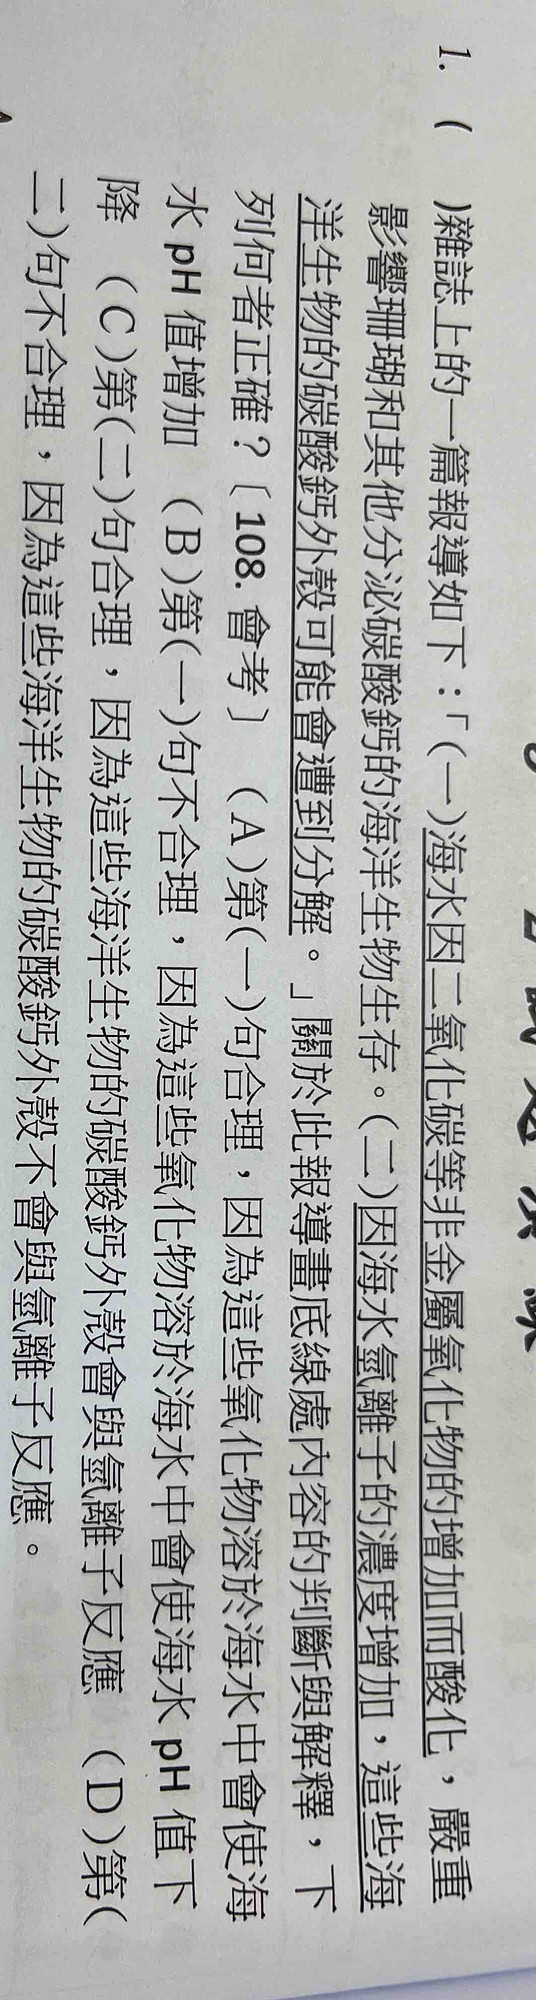 1. (　)雜誌上的一篇報導如下：「(一)海水因二氧化碳等非金屬氧化物的增加而酸化，嚴重
影響珊瑚和其他分泌碳酸鈣的海洋生物生存。(二)因海水氫離子的濃度增加，這些海
洋生物的碳酸鈣外殼可能會遭到分解。」關於此報導畫底線處內容的判斷與解釋，下
列何者正確？〔108. 會考〕 (A)第(一)句合理，因為這些氧化物溶於海水中會使海
水 pH 值增加 (B)第(一)句不合理，因為這些氧化物溶於海水中會使海水 pH 值下
降 (C)第(二)句合理，因為這些海洋生物的碳酸鈣外殼會與氫離子反應 (D)第(
二)句不合理，因為這些海洋生物的碳酸鈣外殼不會與氫離子反應。